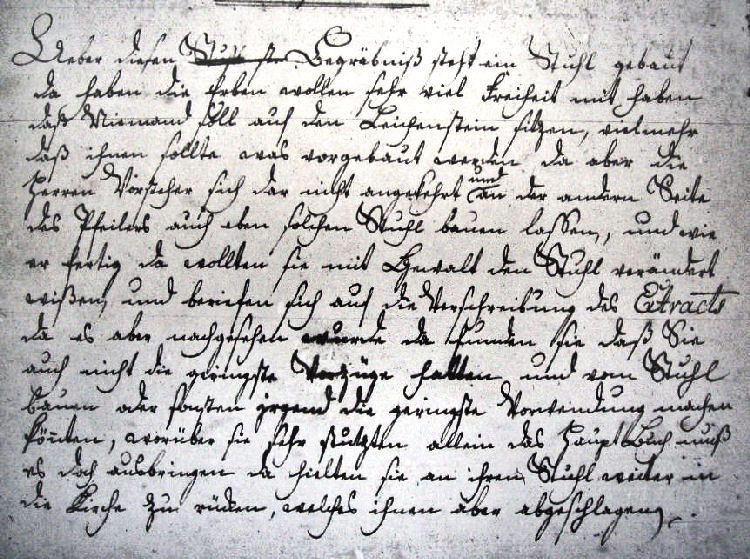 Ueber diesen Stuhl ste Begräbniß steht ein Stuhl gebaut
da haben die Erben wollen sehr viel Freiheit mit haben
daß Niemand soll auf den Leichenstein sitzen, vielmehr
daß ihnen sollte was vorgebaut werden da aber die
Herren Vorsteher sich dar nicht angekehrt und an der andern Seite
des Pfeilers auch eben solchen Stuhl bauen lassen, und wie
er fertig da wollten sie mit Gewalt den Stuhl verändert
wißen, und beriefen sich auf die Verschreibung des Extracts
da es aber nachgesehen wurde da funden sie daß Sie
auch nicht die geringste Vorzüge hatten und vom Stuhl
bauen oder sonsten irgend die geringste Vorwendung machen
könten, worüber sie sehr stutzten allein das Haupt Buch muß
es doch ausbringen da hielten sie an ihren Stuhl weiter in
die Kirche zu rücken, welches ihnen aber abgeschlagen.